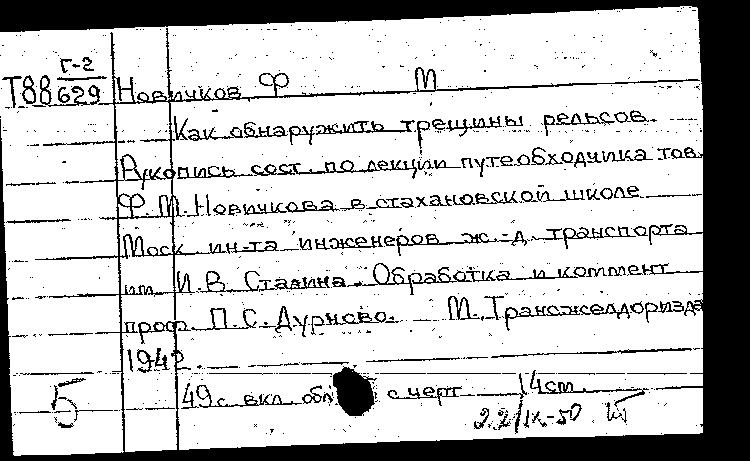 Г-2
Т88 629 Новичков, Ф М
Как обнаружить трещины рельсов.
Рукопись сост. по лекции путеобходчика тов.
Ф. М. Новичкова в стахановской школе
Моск. ин-та инженеров ж.-д. транспорта
им. И. В. Сталина. Обработка и коммент.
проф. П. С. Дурново. М., Трансжелдоризда
1942.
49 с. вкл. обл. с черт 14 cm.
5
22/IX-50